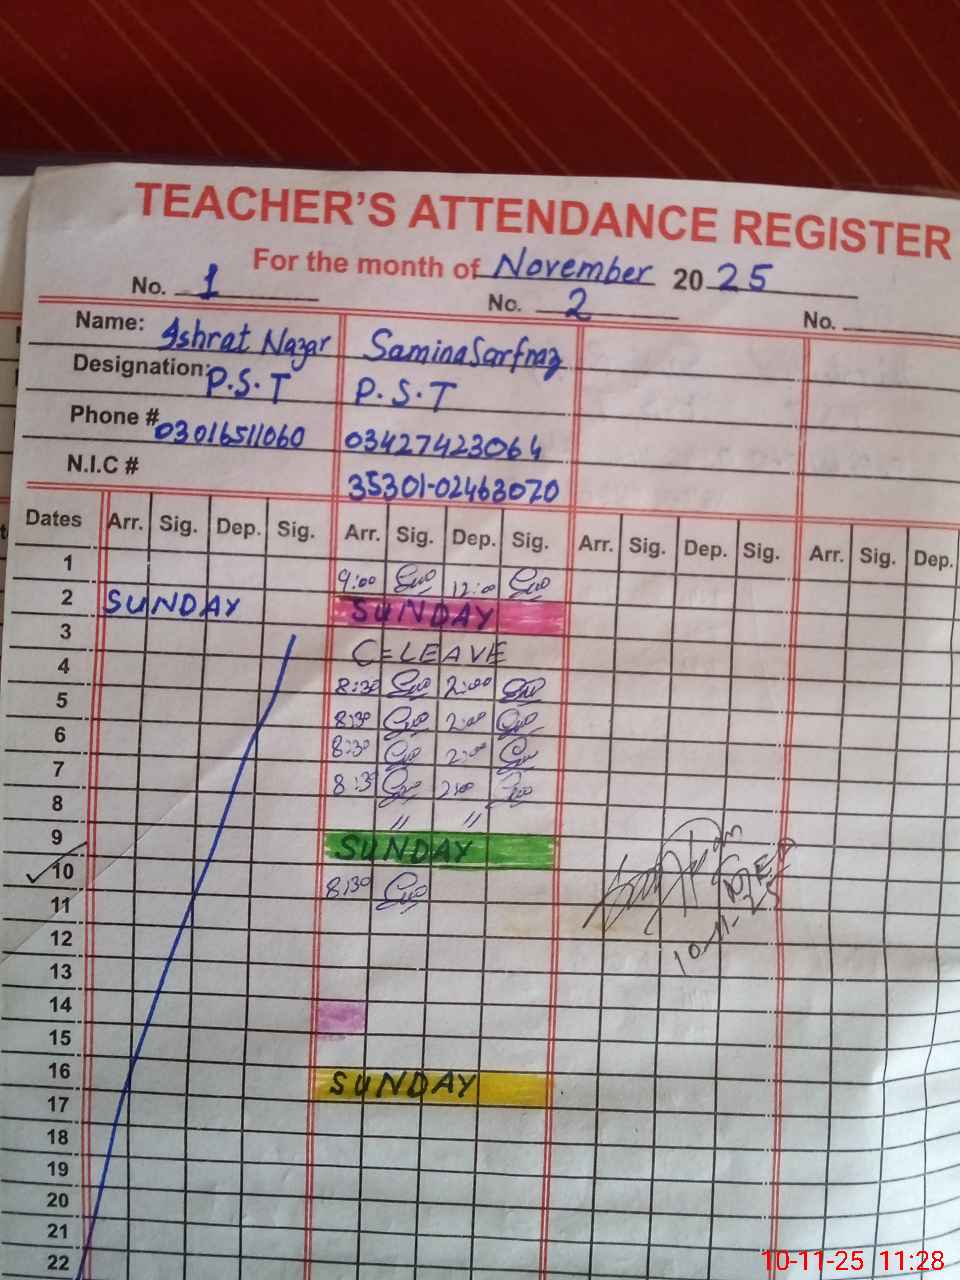 TEACHER'S ATTENDANCE REGISTER
For the month of November 2025
No. 1 No. 2 No.
Name: Ishrat Nazar Samina Sarfraz
Designation: P.S.T P.S.T
Phone # 03016511060 03427423064
N.I.C # 35301-02463070
Dates Arr. Sig. Dep. Sig. Arr. Sig. Dep. Sig. Arr. Sig. Dep. Sig. Arr. Sig. Dep.
1 9:00 12:00
2 SUNDAY SUNDAY
3 C=LEAVE
4 8:30 2:00
5 8:30 2:00
6 8:30 2:00
7 8:30 2:00
8 " "
9 SUNDAY
10 8:30
11
12
13
14
15
16 SUNDAY
17
18
19
20
21
22
10-11-25
10-11-25 11:28